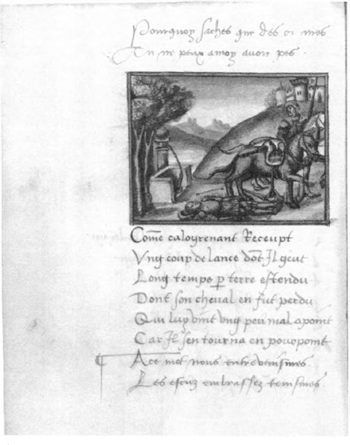 Pourquoy saches que des or mes
En ne peux a moy avoir pes
Come calogrenant Receupt
Vng coup de lance dot Il geut
Long temps p terre estendu
Dont son cheval en fut perdu
Qui luy vint vng peu mal a point
Car Il sen tourna en pourpoint
A ce mot nous entreveinsmes
Les escuz embrassez teinsmes